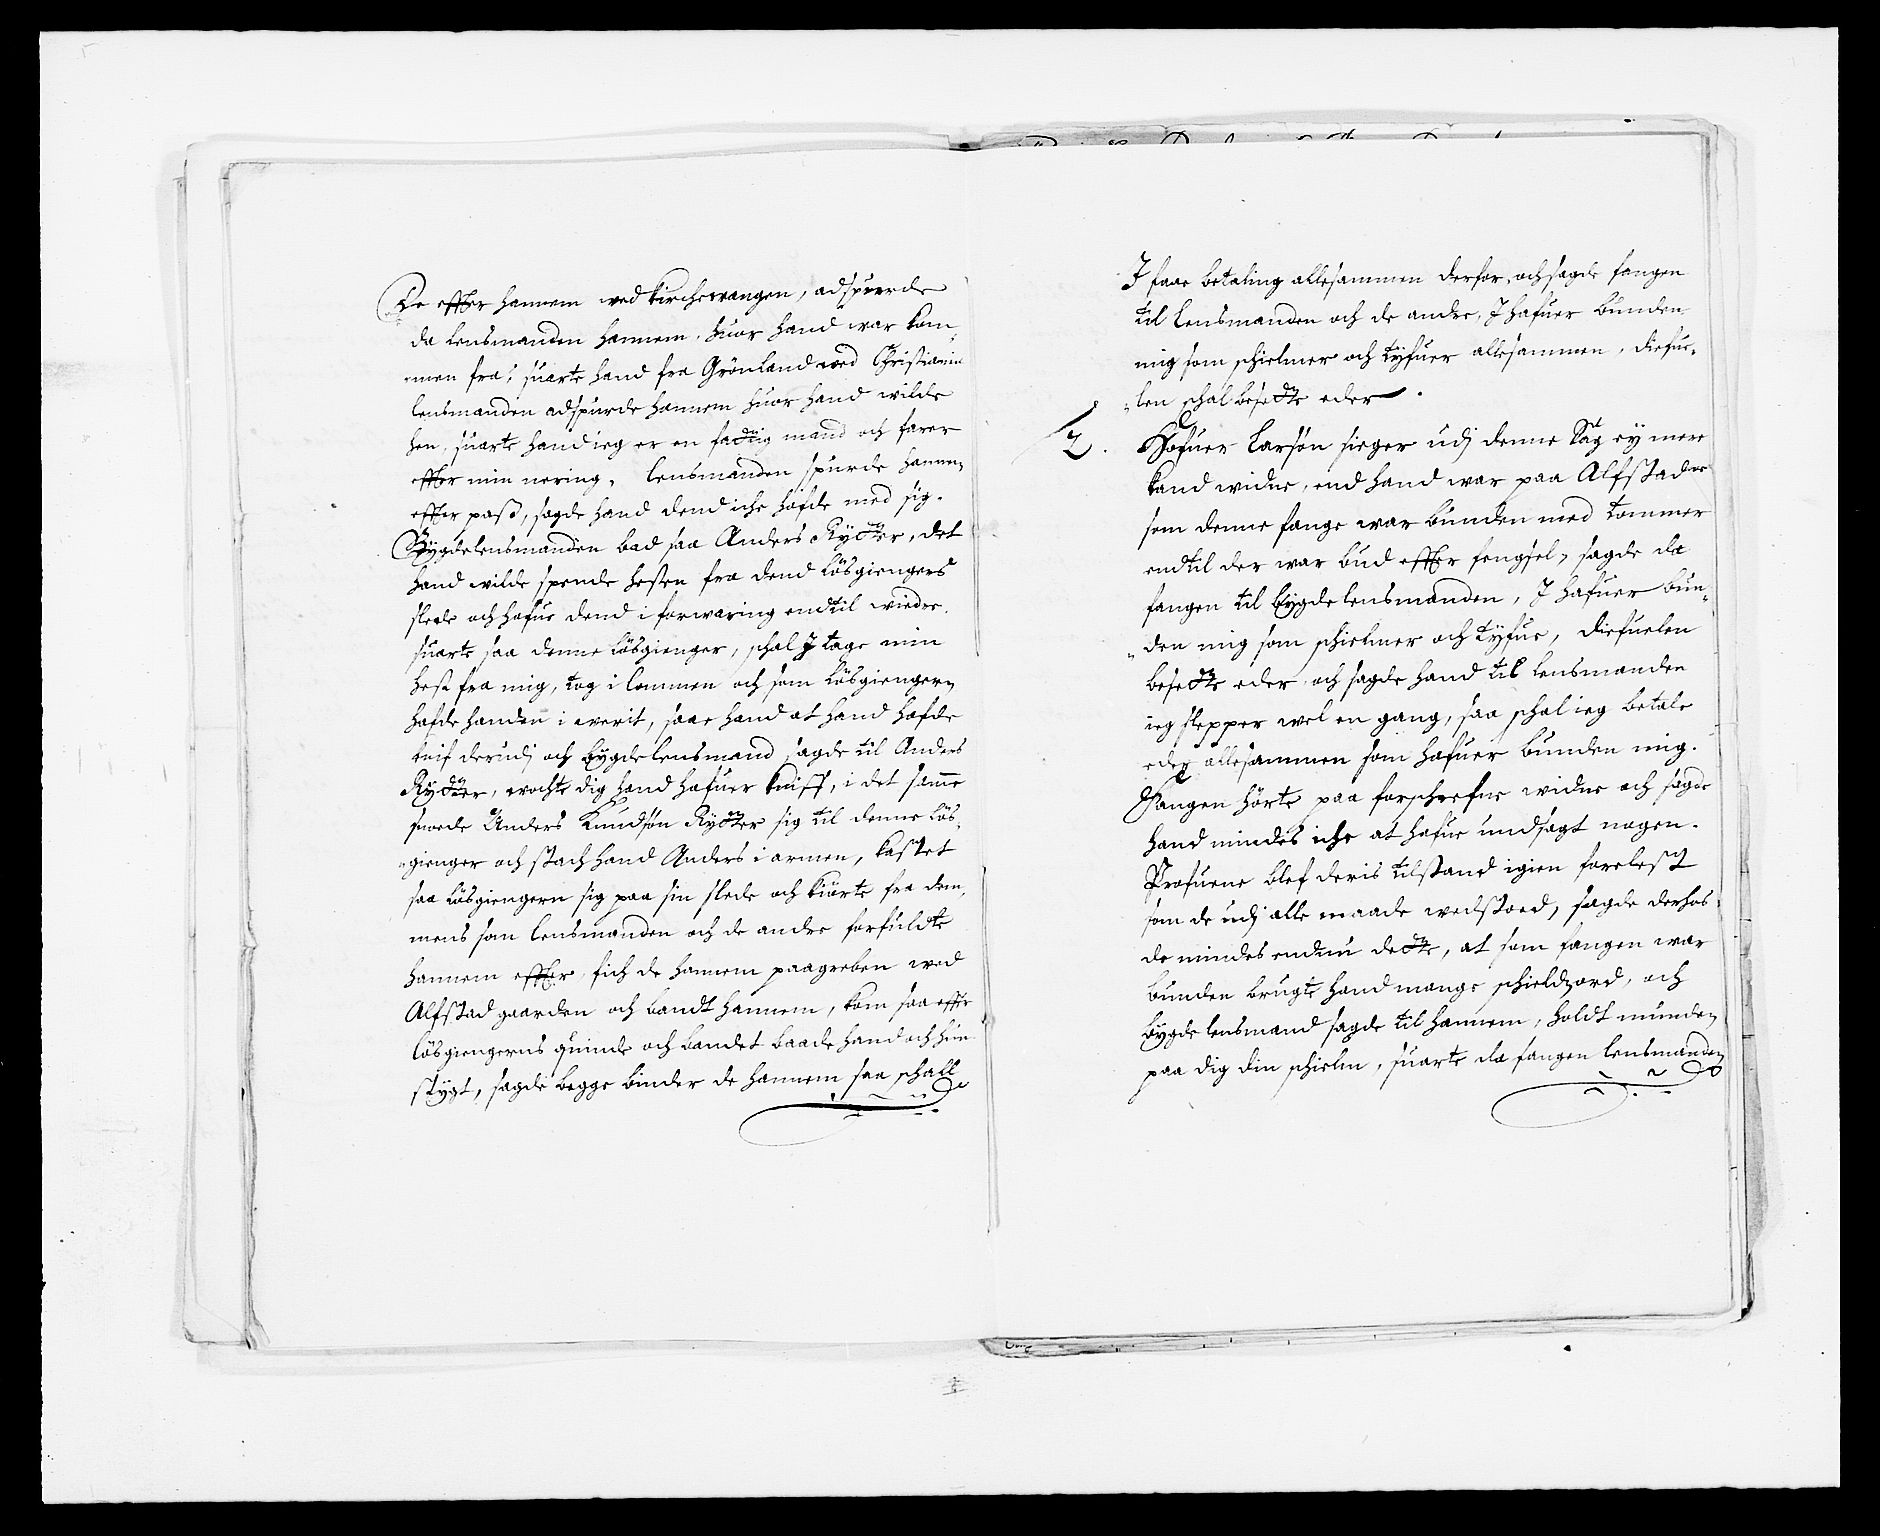 De effter hannem wed Kirchewangen, adspuurde
da lensmanden hannem, huor hand war kom„
„men fra, suarte hand fra Grönland wed Christiania
lensmanden adspurde hannem huor hand wilde
hen, suarte hand ieg er en fattig mand och farer
effter min nering, lensmanden spurde hannem
effter pass, sagde hand dend iche hafde med sig.
Bygdelensmanden bad saa Anders Rytter, det
hand wilde spende hesten fra dend Lösgiengers
slede och hafue dend i forwaring endtil widre,
suarte saa denne Lösgienger, schal I tage min
hest fra mig, tog i lommen och som Lösgiengeren
hafde handen i werit, saae hand at hand hafde
knif derudj och Bygdelensmand sagde til Anders
Rytter, wochte dig hand hafuer kniff, i det samme
snoede Anders Knudsön Rytter sig til denne lös„
„gienger och stach hand Anders i armen, kastet
saa Lösgiengern sig paa sin slede och kiörte fra dem,
mens som lensmanden och de andre forfuldte
hannem effter, fich de hannem paagreben wed
Alfstad gaarden och bandt hannem, kom saa effter
lösgiengerns quinde och bandet baade hand och hun
stygt, sagde begge binder de hannem saa schall
I faae betaling allesammen derfor, och sagde fangen
til lensmanden och de andre, I hafuer bunden
mig som schielmer och tyfuer allesammen, diefue„
„len schal besette eder.
2. Hafuer Larsön sieger udj denne Sag ey mere
kand widne, end hand war paa Alfstader
som denne fange war bunden med tommer
endtil der war bud effter fengsel, sagde da
fangen til Bygdelensmanden, I hafuer bun„
„den mig som schielmer och tyfue, diefuelen
besette eder, och sagde hand til lensmanden
ieg slepper wel en gang, saa schal ieg betale
eder allesammen som hafuer bunden mig.
Fangen hörte paa forschrefne widne och sagde
hand mindes iche at hafue undsagt nogen.
Profuene blef deris tilstand igien forelest
som de udj alle maade wedstoed, sagde derhos
de mindes endnu dette, at som fangen war
bunden brugte hand mange schieldzord, och
bygdelensmand sagde til hannem, holdt munden
paa dig din schielm, suarte da fangen lensmanden